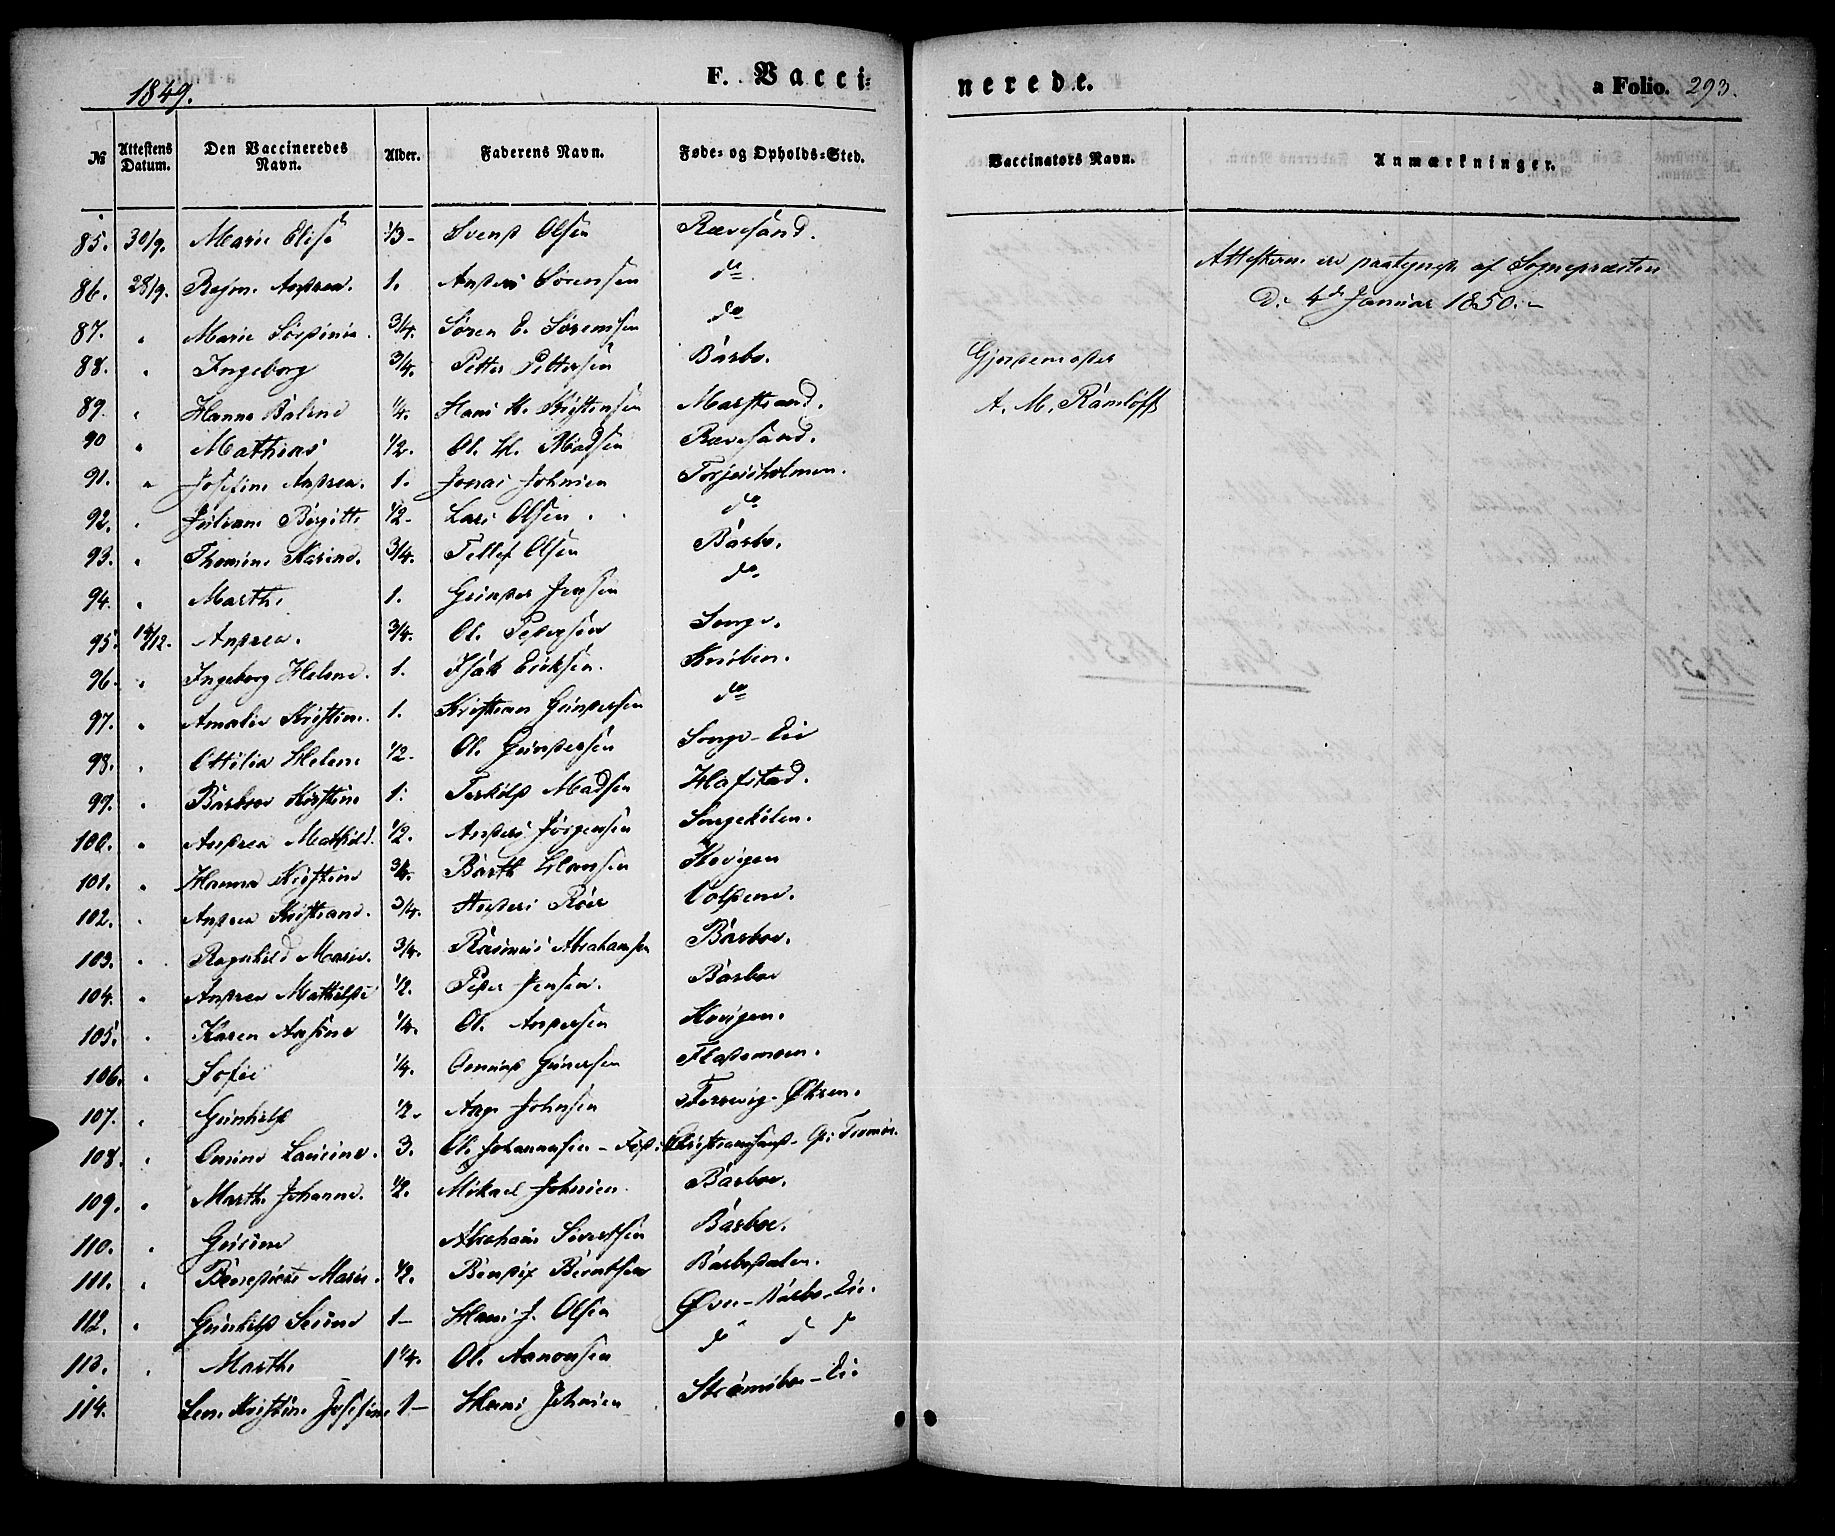 1849.
F. Vaccinerede.
a Folio. 293.
№ Attestens Datum. Den Vaccineredes Navn. Alder. Faderens Navn. Føde- og Opholds-Sted. Vaccinators Navn. Anmærkninger.
85. 30/9. Marie Elise 1/3- Svend Olsen Rævesand.
Attesterne ere paategnede af Sognepræsten
86. 28/9. Andrea. 1. Anders Sørensen do
D. 4de Januar 1850.-
87. " Marie Severine. 3/4. Søren E. Sørensen do
88. " Ingeborg 3/4. Petter Pettersen Barbo.
Gjordemoder
89. " Hanne Baline 1/4. Hans H. Kristensen Marstrand.
A. M. Ramløff
90 " Mathias 1/2. Ole H. Madsen Rævesand.
91. " Josefine Andrea. 1. Jonas Johnsen Torjusholmen.
92. " Juliane Birgitte 1/2- Lars Olsen. do
93. " Thomine Karine. 3/4. Tellef Olsen Barbo.
94. " Marthe 1. Gunder Jensen do.
95. 14/12. Andrea. 3/4. Ole Pedersen Songe.
96. " Ingeborg Helene. 1. Isak Eriksen. Knuben.
97. " Amalie Kristine. 1. Kristian Gundersen do
98. " Ottilia Helene 1/2- Ole Gundersen Songe-Eie
99. " Barbroe Kirstine 1. Terkild Madsen Hafstad.
100. " Andrea Mathild. 1/2. Anders Jørgensen Songekilen.
101. " Hanna Kristine 3/4. Barth Hansen Kvigen
102. " Andrea Kristiane. 3/4. Anders Roer
103. " Ragnhild Marie. 3/4. Rasmus Abrahamsen Barboe.
104. " Andrea Mathilde 1/2. Peder Jensen. Barboe
105. " Karen Aasine 1/4. Ole Andersen Kvigen.
106. " Sofie 1/4. Omund Gunersen Flademoen.
107. " Gunhild 1/2. Aage Johnsen Fervig-Øksen.
108. " Omine Laurine. 3. Ole Johannesen - Fød i Christiansand. Op: Tromøe.
109. " Marthe Johanne. 1/2. Mikael Johnsen. Barboe.
110. " Gusine Abraham Sivertsen Barboe.
111. " Benedicte Marie. 1/2. Bendix Berntsen Barbodalen.
112. " Gunhild Serine 1- Hans J. Olsen Øvre-Barbo-Eie.
113. " Marthe 1 1/4. Ole Aanonsen d d d
114. Lene Kristine Josefine 1- Hans Johnsen Strømsboe-Eie